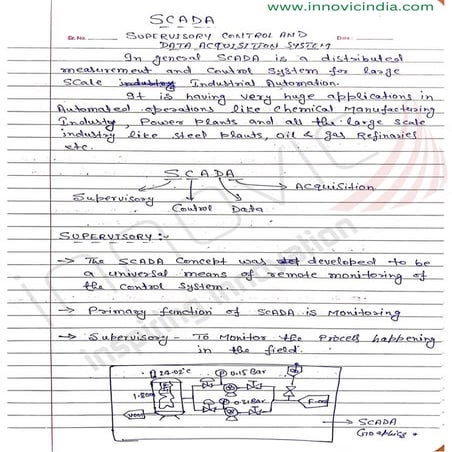 www.innovicindia.com
SCADA
Sr. No.
SUPERVISORY CONTROL AND
Date
DATA ACQUISITION SYSTEM
In general SCADA is a distributed
measurement and control system for large
scale industry Industrial Automation.
It is having very huge applications in
Automated operations like Chemical Manufacturing
Industry, Power plants and all the large scale
industry like steel plants, oil & gas Refinaries
etc.
SCADA
Supervisory
Acquisition
Control Data
SUPERVISORY :-
→ The SCADA Concept was developed to be
a universal means of remote monitoring of
the control system.
→ Primary function of SCADA is Monitoring
→ Supervisory - To Monitor the Process happening
in the field.
0.15 Bar
0.21 Bar
→ SCADA
innovic
inspiring innovation